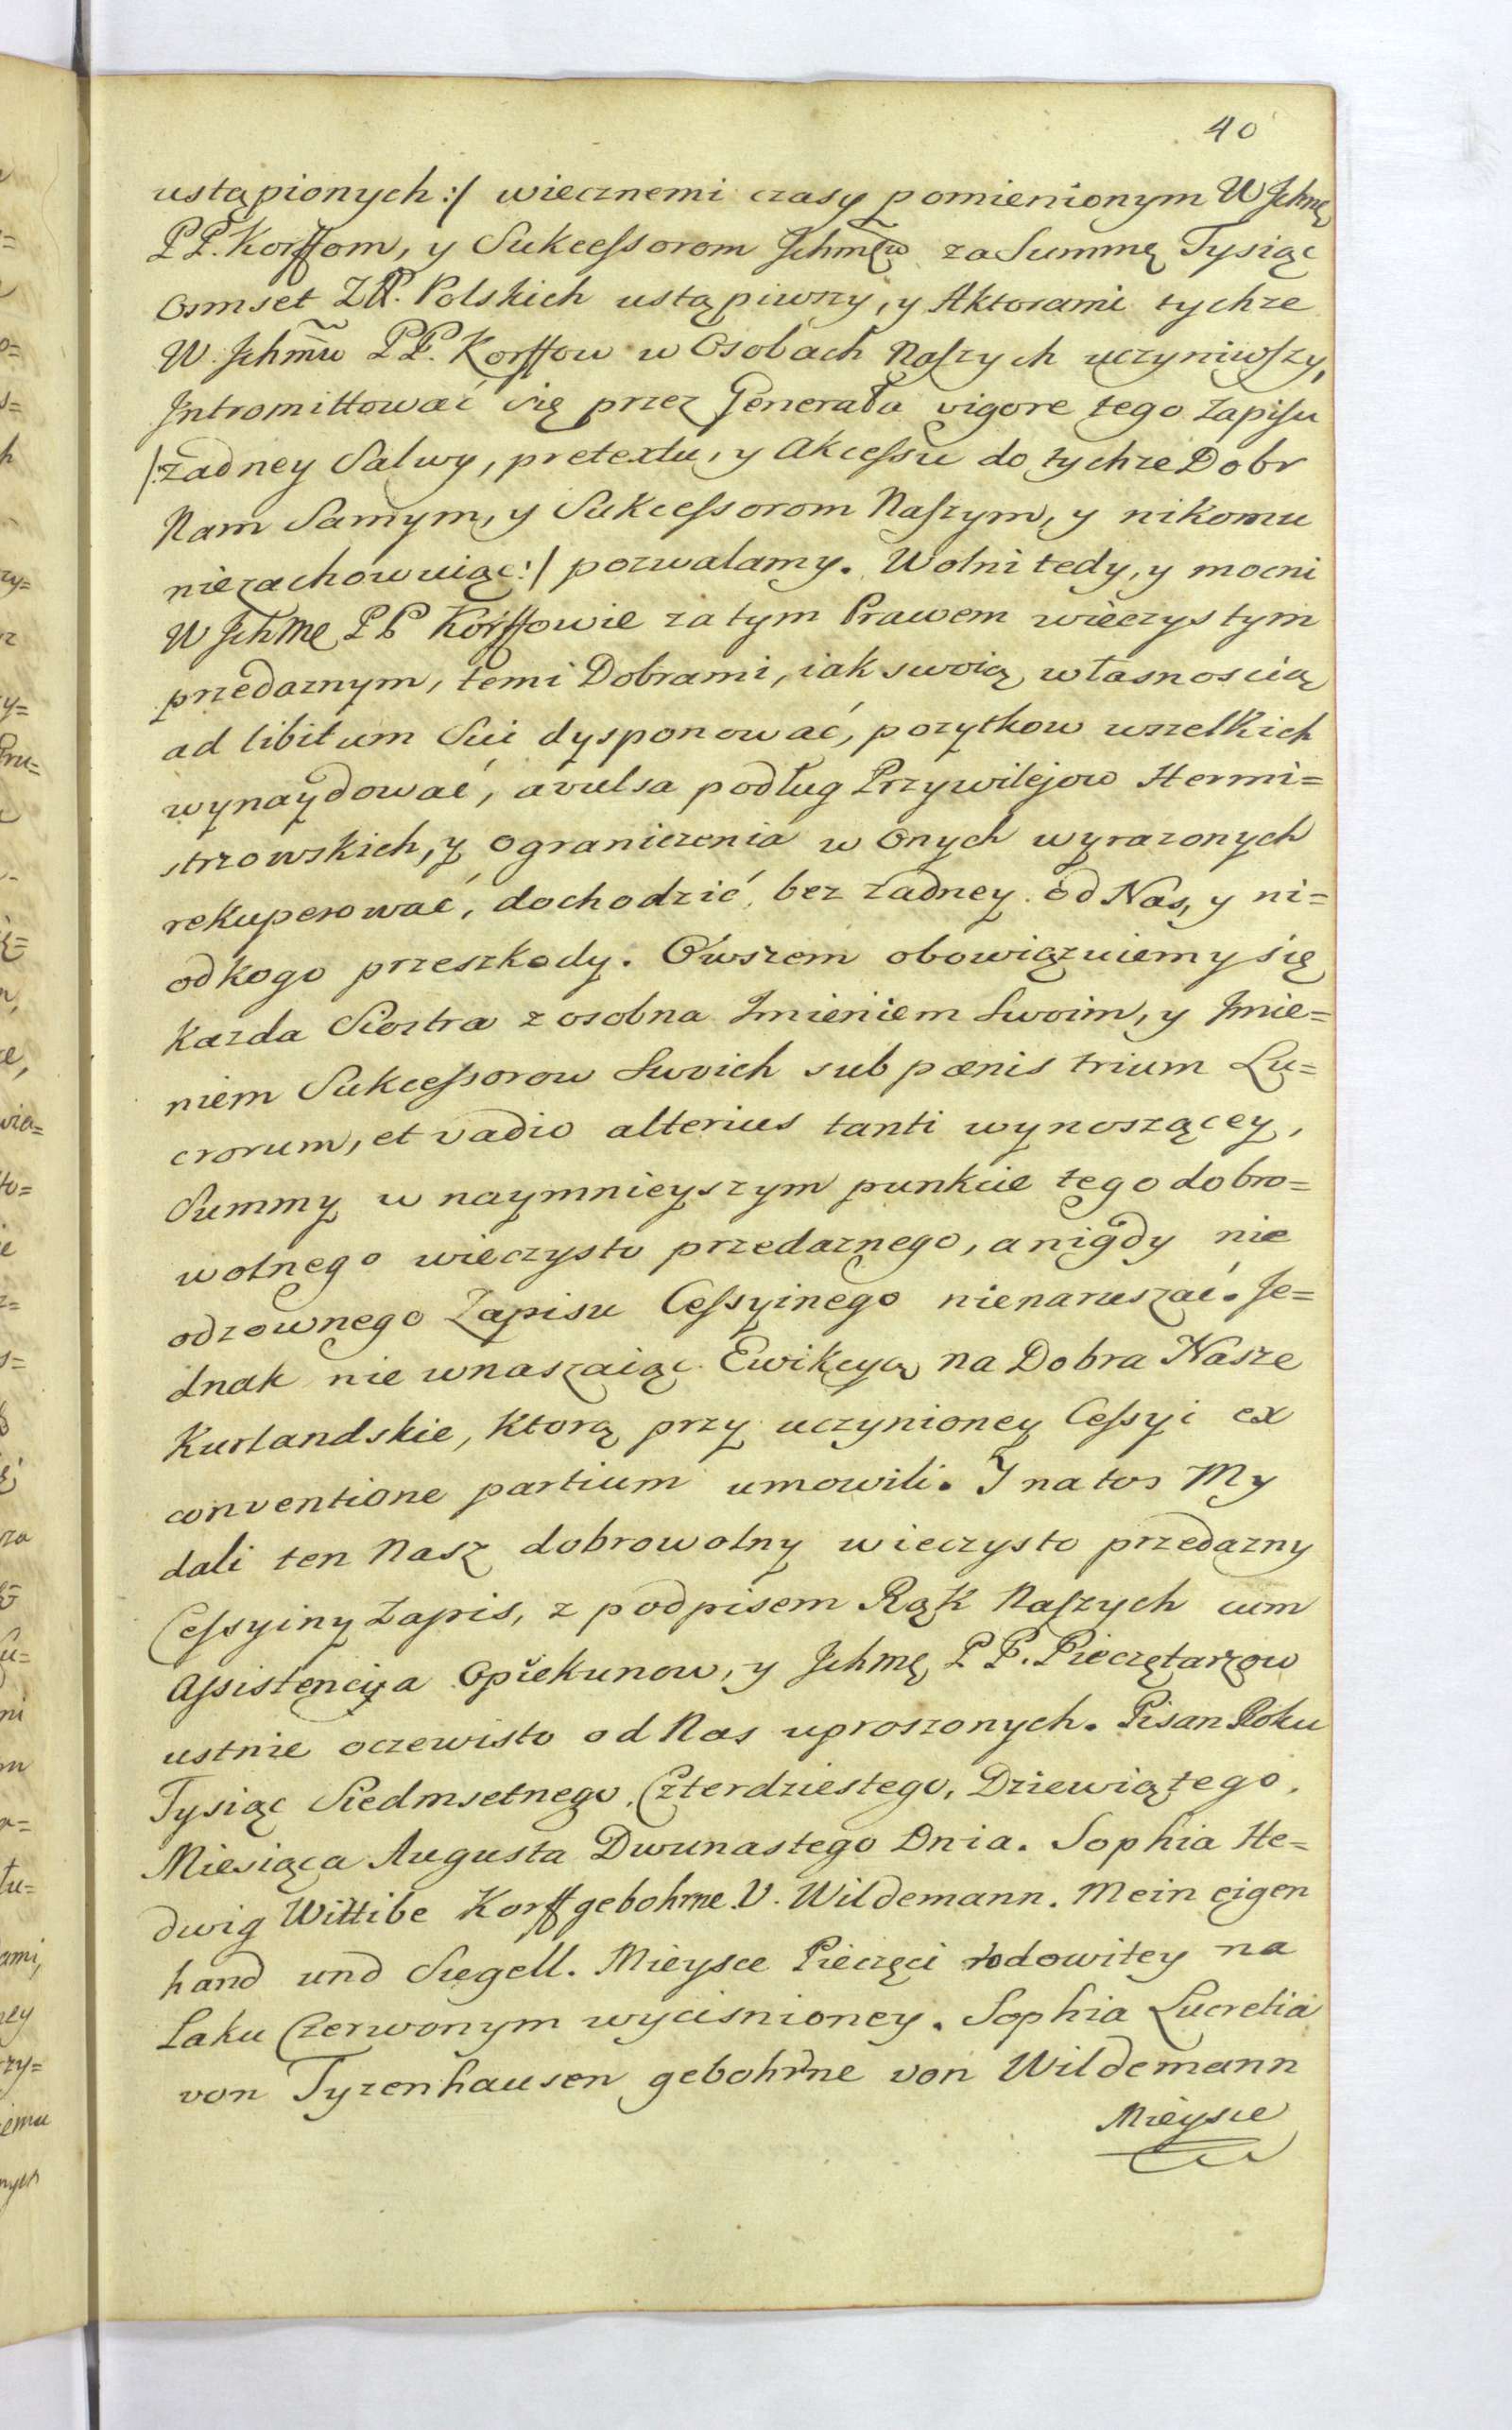 40
ustąpionych:/ wiecznemi czasy pomienionym W Jchmę
PP. Korffom, y Sukcessorom Jchmęw za Summę Tysiąc
osmset ZłP. Polskich ustąpiwszy, y Aktorami tychze
W. Jchmw PP. Korffow w Osobach Naszych uczyniwszy,
Intromittować się przez Generała vigore tego Zapisu
/:zadney Salwy, pretextu, y Akcessu do tychze Dobr
Nam Samym, y Sukcessorom Naszym, y nikomu
niezachowuiąc:/ pozwalamy. Wolni tedy, y mocni
W Jchme PP Korffowie za tym Prawem wieczystym
przedaznym, temi Dobrami, iak swoią własnoscią
ad libitum Sui dysponować, pozytkow wszelkich
wynaydować, avulsa podług Przywilejow Hermi=
strzowskich, y ograniczenia w onych wyrazonych
rekuperować, dochodzić, bez zadney od Nas, y ni=
odkogo przeszkody. Owszem obowiązuiemy się
Kazda Siostra zosobna Imieniem Swoim, y Imie=
niem Sukcessorow Swoich sub pœnis trium Lu=
crorum, et vadio alterius tanti wynoszącey,
Summy w naymnieyszym punkcie tego dobro=
wolnego wieczysto przedaznego, a nigdy nie
odzownego Zapisu Cessyinego nienaruszać. Je=
dnak nie wnaszaiąc Ewikcyą na Dobra Nasze
Kurlandskie, Ktorą przy uczynioney Cessyi ex
conventione partium umowili. Y na tos My
dali ten Nasz dobrowolny wieczysto przedazny
Cessyiny Zapis, z podpisem Rąk Naszych cum
Assistencya Opiekunow, y Jchmę PP. Pieczętarzow
ustnie oczewisto od Nas uproszonych. Pisan Roku
Tysiąc Siedmsetnego, Czterdziestego, Dziewiątego,
Miesiąca Augusta Dwunastego Dnia. Sophia He=
dwig Wittibe Korff gebohrne V. Wildemann. Mein eigen
hand und Siegell. Mieysce Pieczęci rodowitey na
Laku Czerwonym wycisnioney. Sophia Lucretia
von Tyzenhausen gebohrne von Wildemann
Mieysce